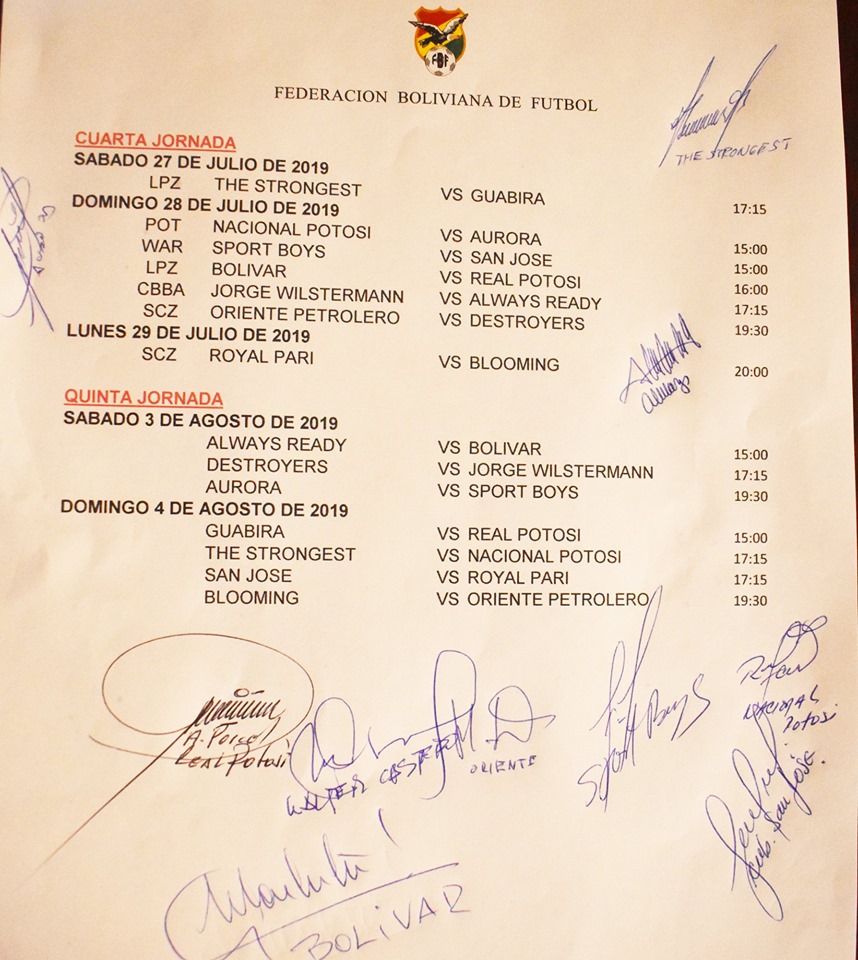 FBF
FEDERACION BOLIVIANA DE FUTBOL
THE STRONGEST
CUARTA JORNADA
SABADO 27 DE JULIO DE 2019
LPZ THE STRONGEST VS GUABIRA 17:15
DOMINGO 28 DE JULIO DE 2019
POT NACIONAL POTOSI VS AURORA 15:00
WAR SPORT BOYS VS SAN JOSE 15:00
LPZ BOLIVAR VS REAL POTOSI 16:00
CBBA JORGE WILSTERMANN VS ALWAYS READY 17:15
SCZ ORIENTE PETROLERO VS DESTROYERS 19:30
LUNES 29 DE JULIO DE 2019
SCZ ROYAL PARI VS BLOOMING 20:00
QUINTA JORNADA
SABADO 3 DE AGOSTO DE 2019
ALWAYS READY VS BOLIVAR 15:00
DESTROYERS VS JORGE WILSTERMANN 17:15
AURORA VS SPORT BOYS 19:30
DOMINGO 4 DE AGOSTO DE 2019
GUABIRA VS REAL POTOSI 15:00
THE STRONGEST VS NACIONAL POTOSI 17:15
SAN JOSE VS ROYAL PARI 17:15
BLOOMING VS ORIENTE PETROLERO 19:30
REAL POTOSI
WALTER
ORIENTE
Sport Boys
NACIONAL
POTOSI
San José.
BOLIVAR